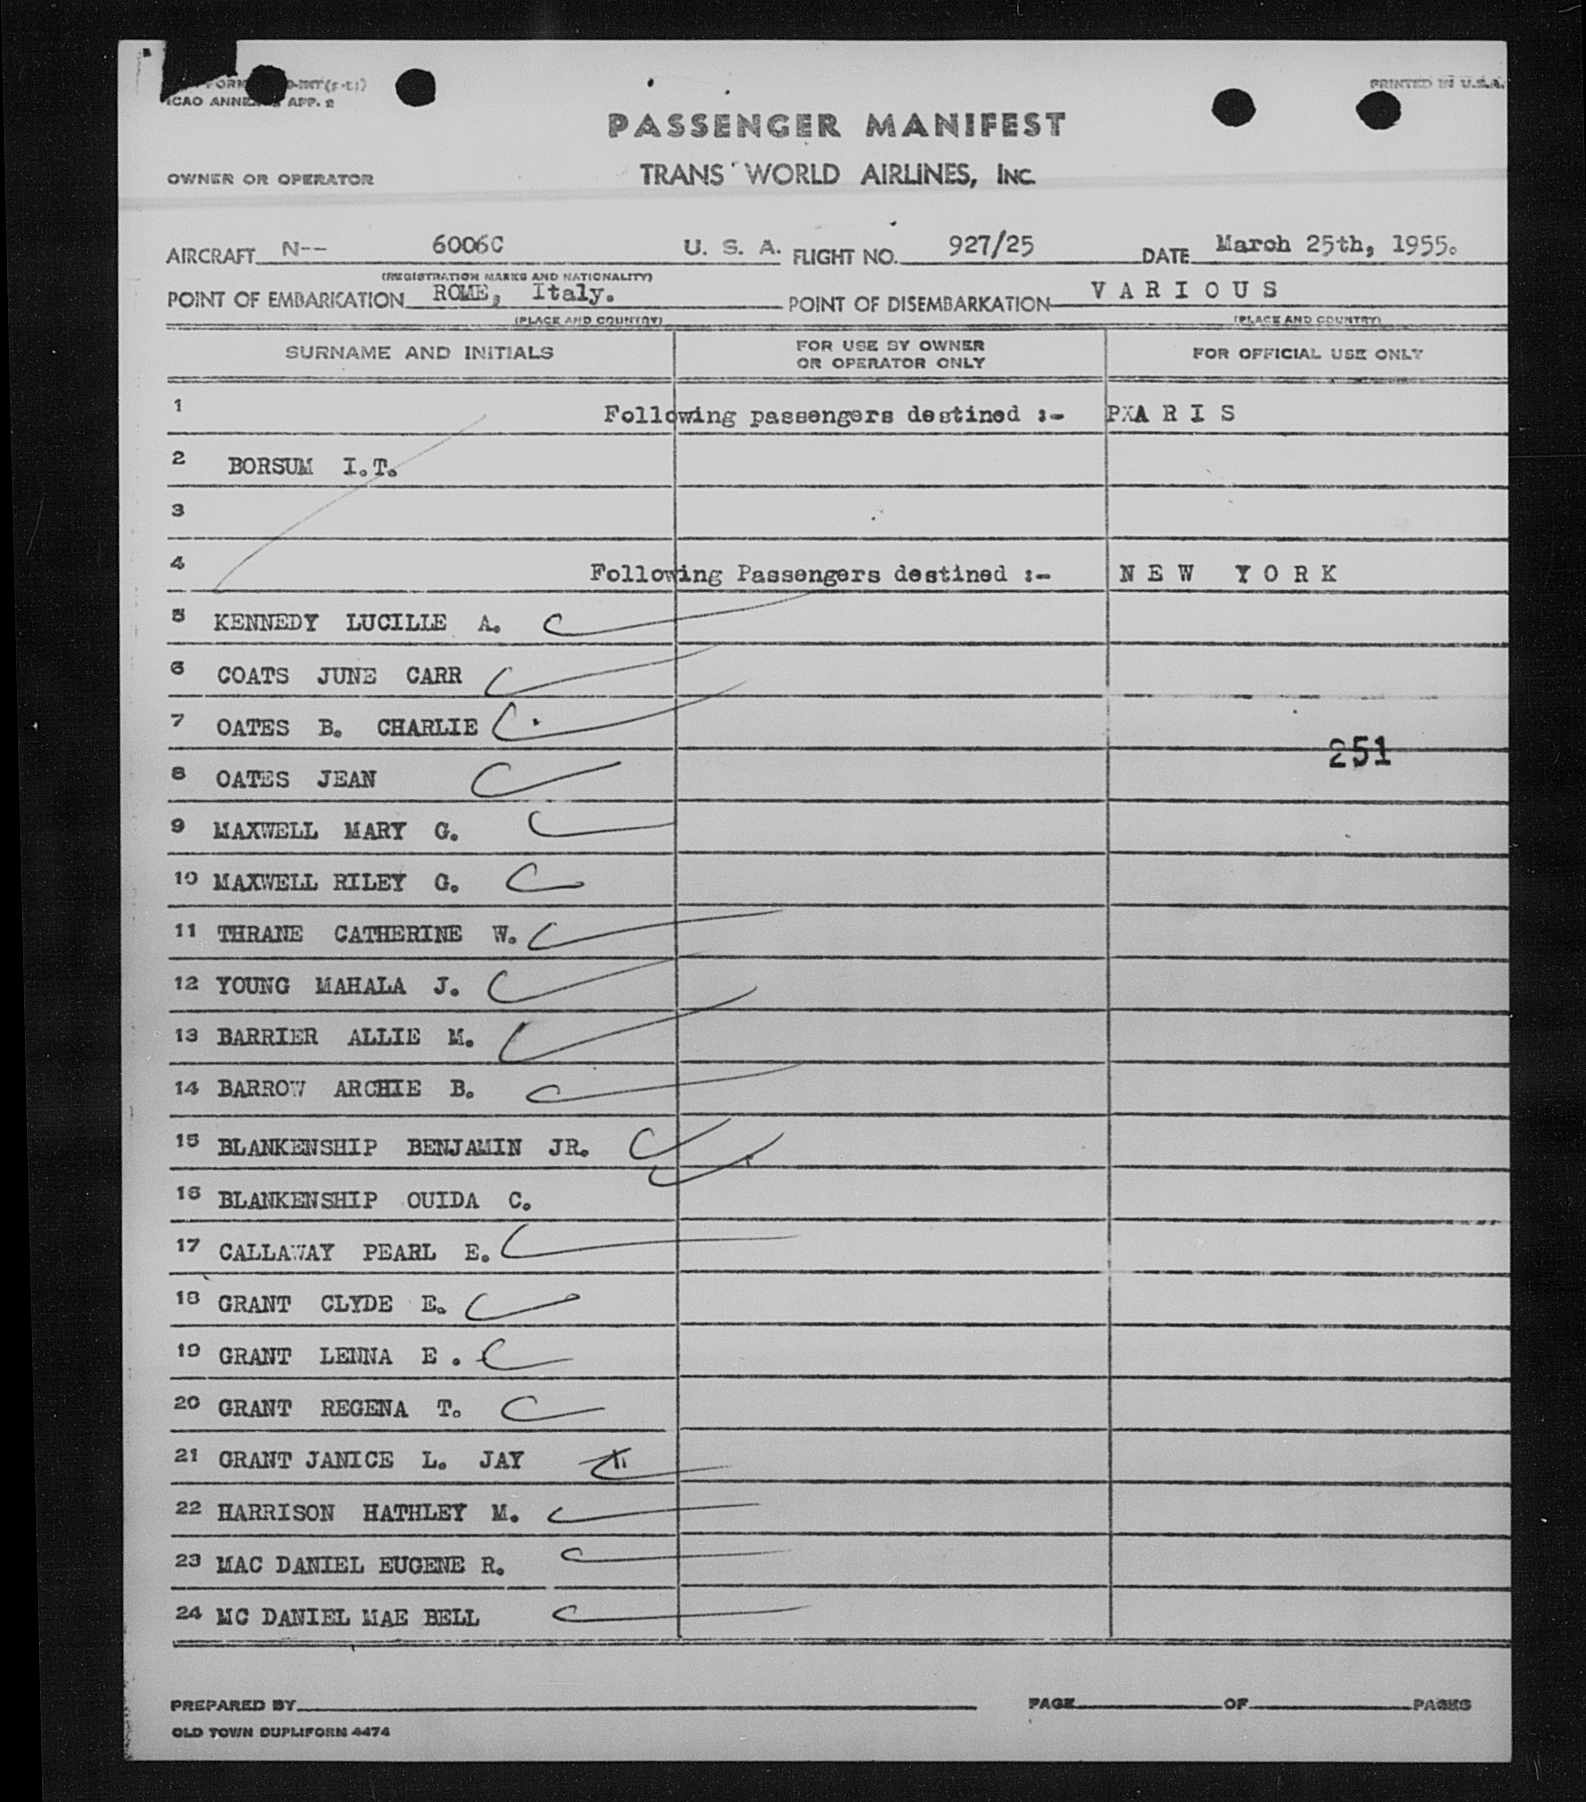 FORM INT(s-t:)
ICAO ANNEX APP. 2
PRINTED IN U.S.A.
PASSENGER MANIFEST
OWNER OR OPERATOR TRANS WORLD AIRLINES, INC.
AIRCRAFT N-- 6006C U. S. A. FLIGHT NO. 927/25 DATE March 25th, 1955.
(REGISTRATION MARKS AND NATIONALITY)
POINT OF EMBARKATION ROME, Italy. POINT OF DISEMBARKATION V A R I O U S
(PLACE AND COUNTRY) (PLACE AND COUNTRY)
SURNAME AND INITIALS FOR USE BY OWNER OR OPERATOR ONLY FOR OFFICIAL USE ONLY
1 Following passengers destined :- PXA R I S
2 BORSUM I.T.
3
4 Following Passengers destined :- N E W Y O R K
5 KENNEDY LUCILLE A.
6 COATS JUNE CARR
7 OATES B. CHARLIE
251
8 OATES JEAN
9 MAXWELL MARY G.
10 MAXWELL RILEY G.
11 THRANE CATHERINE W.
12 YOUNG MAHALA J.
13 BARRIER ALLIE M.
14 BARROW ARCHIE B.
15 BLANKENSHIP BENJAMIN JR.
16 BLANKENSHIP OUIDA C.
17 CALLAWAY PEARL E.
18 GRANT CLYDE E.
19 GRANT LENNA E .
20 GRANT REGENA T.
21 GRANT JANICE L. JAY
22 HARRISON HATHLEY M.
23 MAC DANIEL EUGENE R.
24 MC DANIEL MAE BELL
PREPARED BY PAGE OF PAGES
OLD TOWN DUPLIFORM 4474